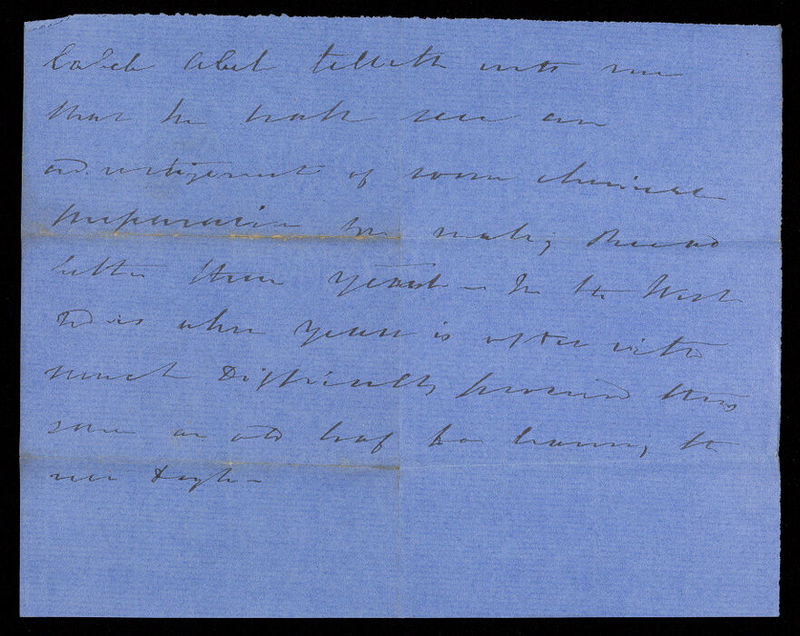 Caleb Abel telleth unto me
that he hath seen an
advertizement of some chemical
preparation for making Bread
better than yeast – In the West
Indies where yeast is often with
much difficulty procured they
some an old loaf for leavening the
new dough –